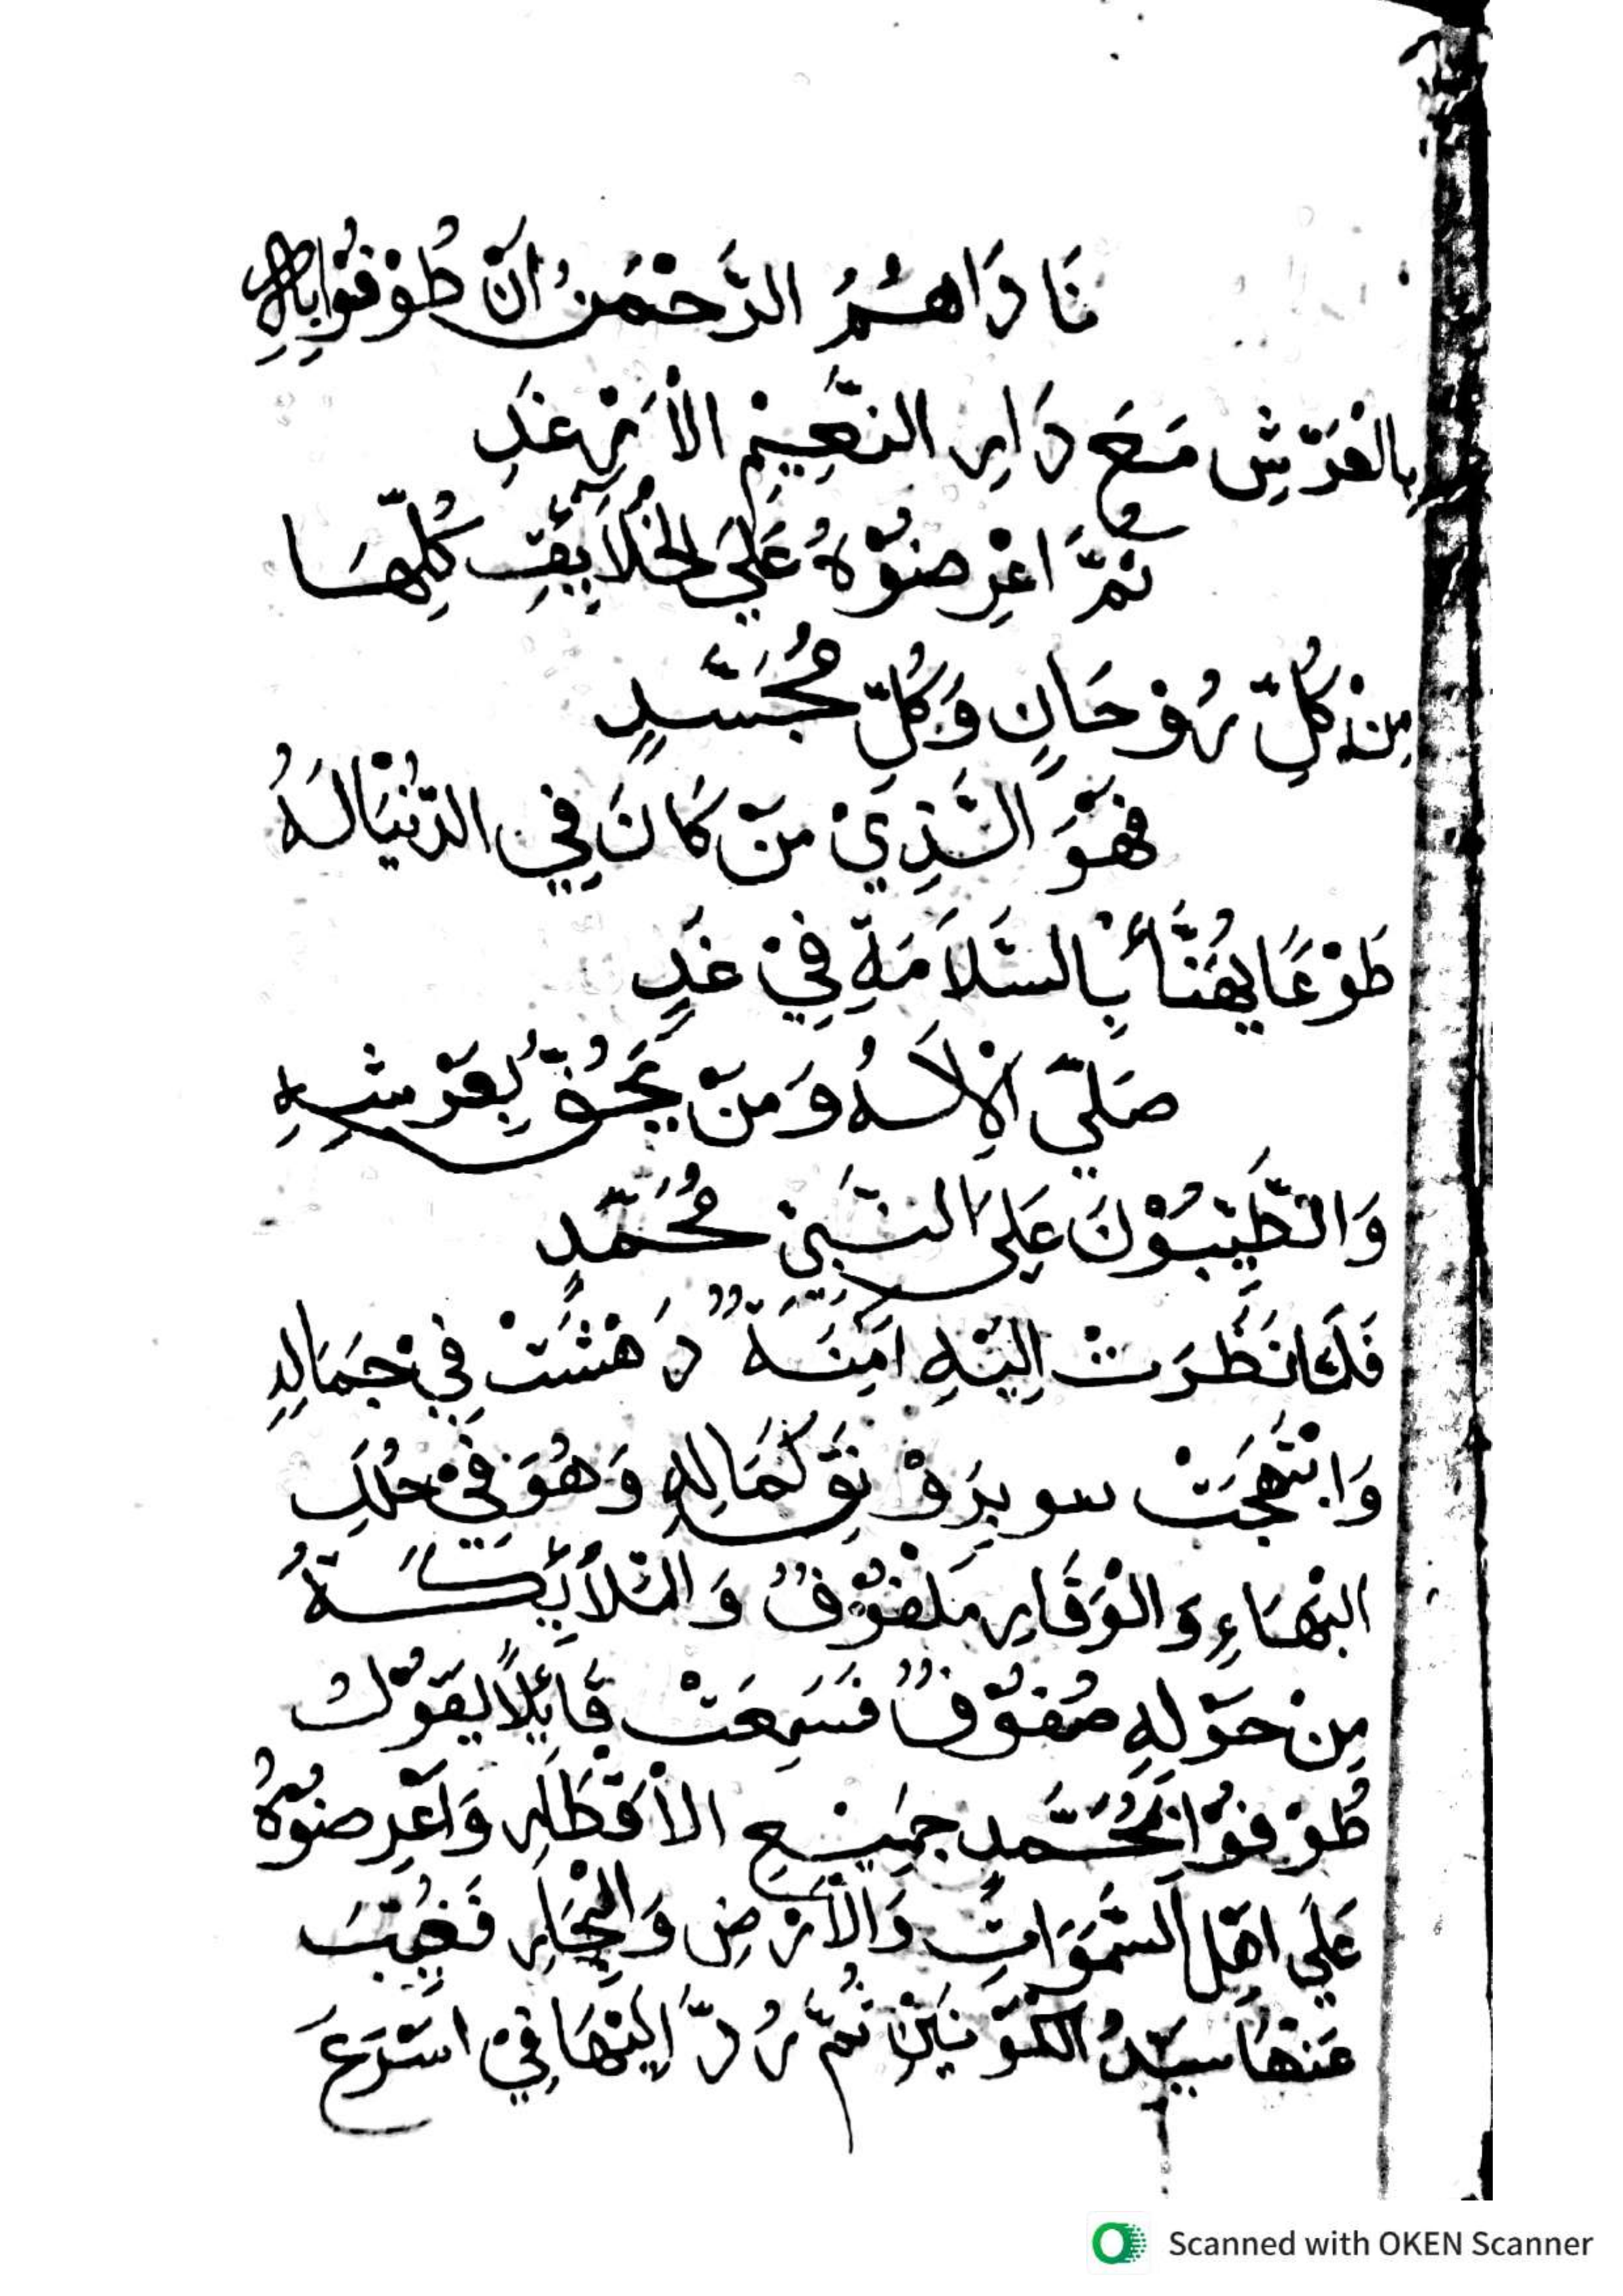 نَادَاهُمُ الرَّحْمٰنُ اَنْ طُوْفُوْا بِهِ
بِالْعَرْشِ مَعَ دَارِ النَّعِيْمِ الْاَرْغَدِ
ثُمَّ اعْرِضُوْهُ عَلَي الْخَلَائِقِ كُلِّهَا
مِنْ كُلِّ رُوْحَانٍ وَكُلِّ مُجَسَّدٍ
فَهْوَ الَّذِيْ مَنْ كَانَ فِي الدُّنْيَا لَهُ
طَوْعًا يُهَنَّأُ بِالسَّلَامَةِ فِيْ غَدٍ
صَلَّي الْاِلَاهُ وَمَنْ يَحُفُّ بِعَرْشِهِ
وَالطَّيِّبُوْنَ عَلَى النَّبِيْ مُحَمَّدٍ
فَلَمَّا نَظَرَتْ اِلَيْهِ اٰمِنَةٌ دَهَشَتْ فِيْ جَمَالِهِ
وَابْتَهَجَتْ بِرَوْنَقِ كَمَالِهِ وَهُوَ فِيْ حُلَلِ
الْبَهَاءِ وَالْوَقَارِ مَلْفُوْفٌ وَالْمَلَائِكَةُ
مِنْ حَوْلِهِ صُفُوْفٌ فَسَمِعَتْ قَائِلًا يَقُوْلُ
طُوْفُوْا بِمُحَمَّدٍ جَمِيْعَ الْاَقْطَارِ وَاَعْرِضُوْهُ
عَلَي اَهْلِ السَّمَوَاتِ وَالْاَرْضِ وَالْبِحَارِ فَغُيِّبَ
عَنْهَا سَيِّدُ الْكَوْنَيْنِ ثُمَّ رُدَّ اِلَيْهَا فِيْ اَسْرَعَ
Scanned with OKEN Scanner